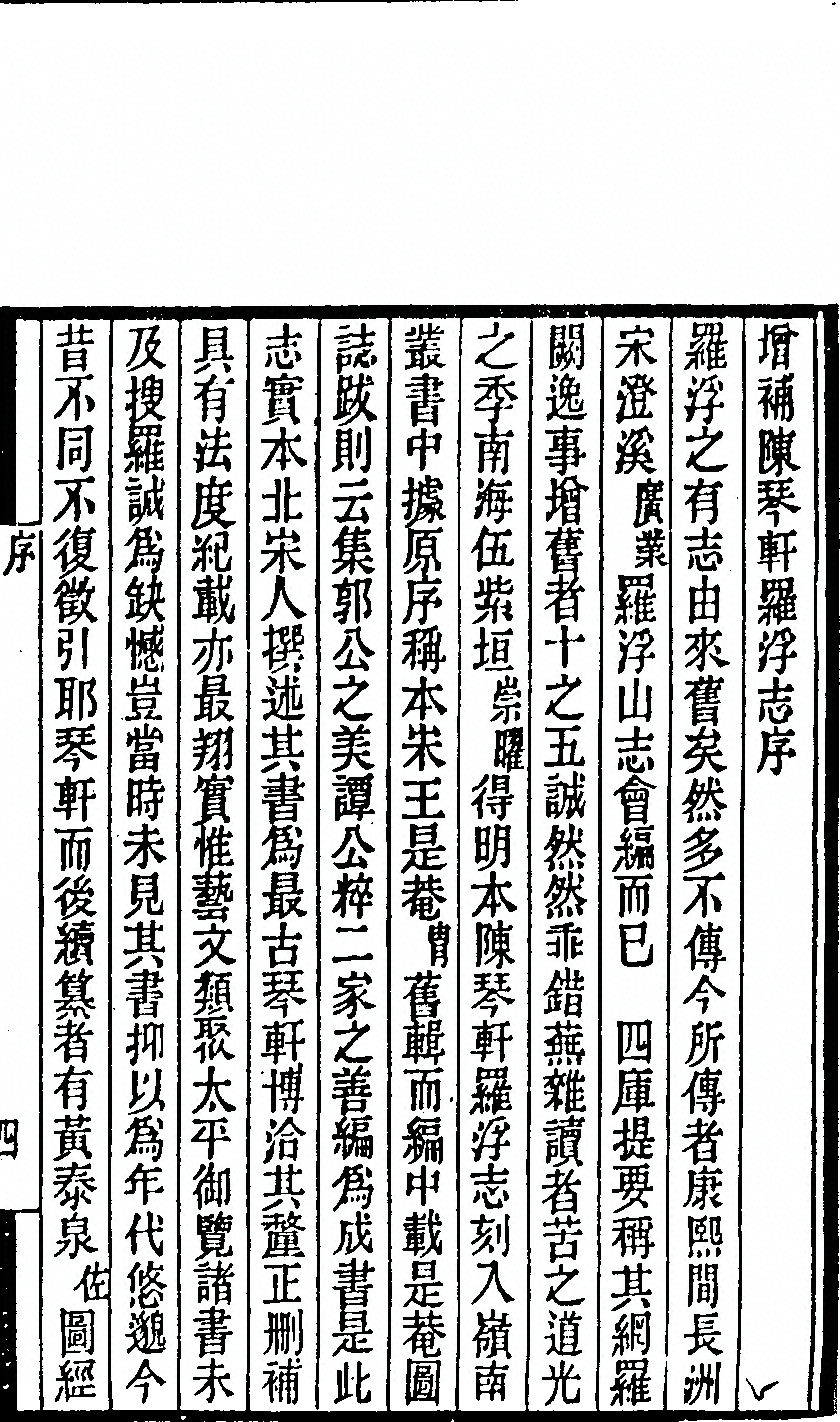 增補陳琴軒羅浮志序
羅浮之有志由來舊矣然多不傳今所傳者康熙間長洲
宋澄溪廣業羅浮山志會編而已　四庫提要稱其網羅
闕逸事增舊者十之五誠然然乖錯蕪雜讀者苦之道光
之季南海伍紫垣崇曜得明本陳琴軒羅浮志刻入嶺南
叢書中據原序稱本宋王是菴胄舊輯而編中載是菴圖
誌跋則云集郭公之美譚公粹二家之善編爲成書是此
志實本北宋人撰述其書爲最古琴軒博洽其釐正刪補
具有法度紀載亦最翔實惟藝文類聚太平御覽諸書未
及搜羅誠爲缺憾豈當時未見其書抑以爲年代悠邈今
昔不同不復徵引耶琴軒而後續纂者有黃泰泉佐圖經
序
四